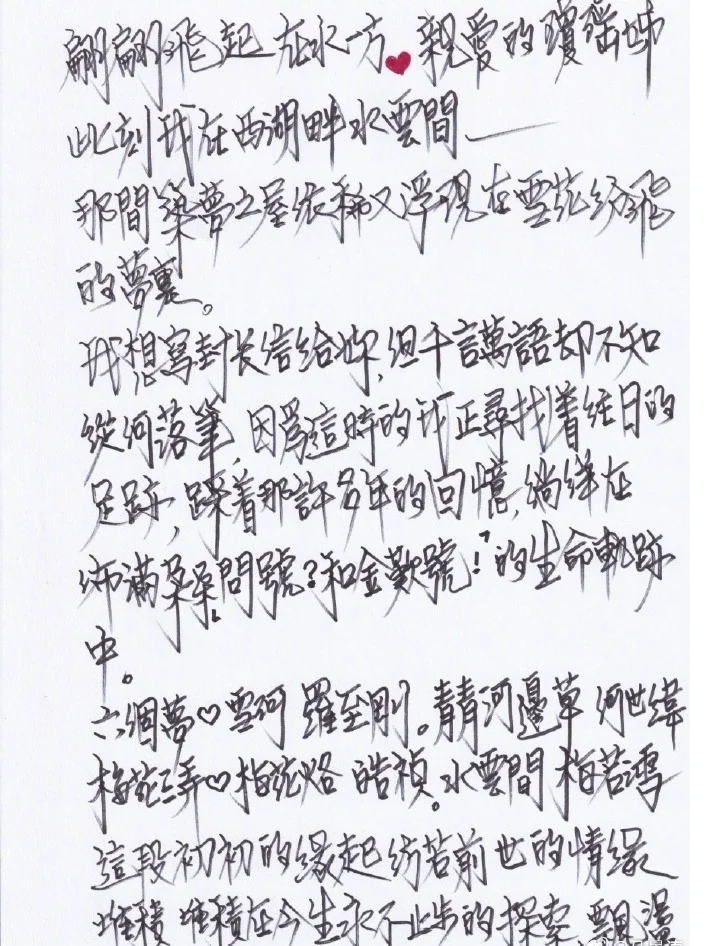 翩翩飛起 在水一方 ♥ 親愛的瓊瑤姊
此刻我在西湖畔水雲間——
那間築夢之屋依稀又浮現在雪花紛飛
的夢裏。
我想寫封长信給妳,但千言萬語却不知
從何落筆,因爲這時的我正尋找着往日的
足跡,踩着那許多年的回憶,徜徉在
佈滿朶朶問號?和金歎號!的生命軌跡
中。
六個夢♡雪珂 羅至剛。青青河邊草 何世緯
梅花三弄♡梅花烙 皓禎。水雲間 梅若鴻
這段初初的緣起彷若前世的情缘
堆積 堆積在今生永不止步的探索 飄